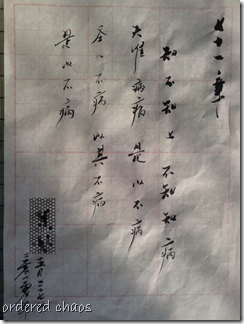 七十一章
知不知上 不知知病
夫惟病病 是以不病
圣人不病 以其不病
是以不病
五月二十七
ordered chaos